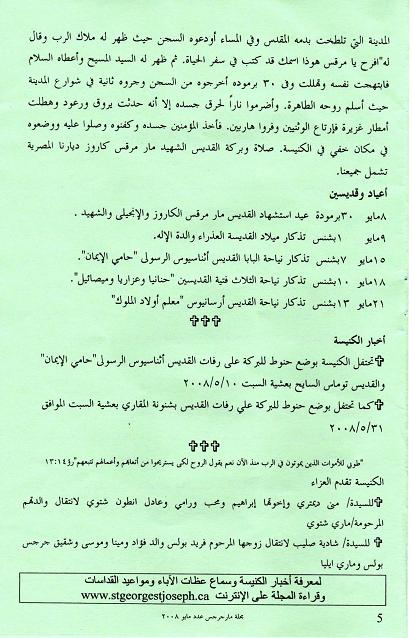 المدينة التي تلطخت بدمه المقدس وفي المساء أودعوه السجن حيث ظهر له ملاك الرب وقال
له"افرح يا مرقس هوذا اسمك قد كتب في سفر الحياة. ثم ظهر له السيد المسيح وأعطاه السلام
فابتهجت نفسه وتهللت وفى ٣٠ برموده أخرجوه من السجن وجروه ثانية في شوارع المدينة
حيث أسلم روحه الطاهرة. وأضرموا ناراً لحرق جسده إلا أنه حدثت بروق ورعود وهطلت
أمطار غزيرة فإرتاع الوثنيين وفروا هاربين. فأخذ المؤمنين جسده وكفنوه وصلوا عليه ووضعوه
في مكان خفي في الكنيسة. صلاة وبركة القديس الشهيد مار مرقس كاروز ديارنا المصرية
تشمل جميعنا.
أعياد وقديسين
٨مايو ٣٠برمودة عيد استشهاد القديس مار مرقس الكاروز والإنجيلى والشهيد .
٩مايو ١بشنس تذكار ميلاد القديسة العذراء والدة الإله.
١٥مايو ٧بشنس تذكار نياحة البابا القديس أثناسيوس الرسولى "حامي الإيمان".
١٨مايو ١٠بشنس تذكار نياحة الثلاث فتية القديسين "حنانيا وعزاريا وميصائيل".
٢١مايو ١٣بشنس تذكار نياحة القديس أرسانيوس "معلم أولاد الملوك"
✞✞✞
أخبار الكنيسة
✞تحتفل الكنيسة بوضع حنوط للبركة على رفات القديس أثناسيوس الرسولى"حامي الإيمان"
والقديس توماس السايح بعشية السبت ٢٠٠٨/٥/١٠
✞كما تحتفل بوضع حنوط للبركة علي رفات القديس بشنونة المقاري بعشية السبت الموافق
٢٠٠٨/٥/٣١
✞✞✞
"طوبي للأموات الذين يموتون في الرب منذ الآن نعم يقول الروح لكى يستريحوا من أتعابهم وأعمالهم تتبعهم"رؤ١٣:١٤
الكنيسة تقدم العزاء
✞للسيدة/ منى ديمتري وإخوتها إبراهيم ومحب ورامي وعادل انطون شتوي لانتقال والدتهم
المرحومة/ماري شتوي
✞ للسيدة/ شادية صليب لانتقال زوجها المرحوم فريد بولس والد فؤاد ومينا وموسى وشقيق جرجس
بولس وماري ايليا
لمعرفة أخبار الكنيسة وسماع عظات الآباء ومواعيد القداسات
وقراءة المجلة على الإنترنت www.stgeorgestjoseph.ca
مجلة مارجرجس عدد مايو ٢٠٠٨
5